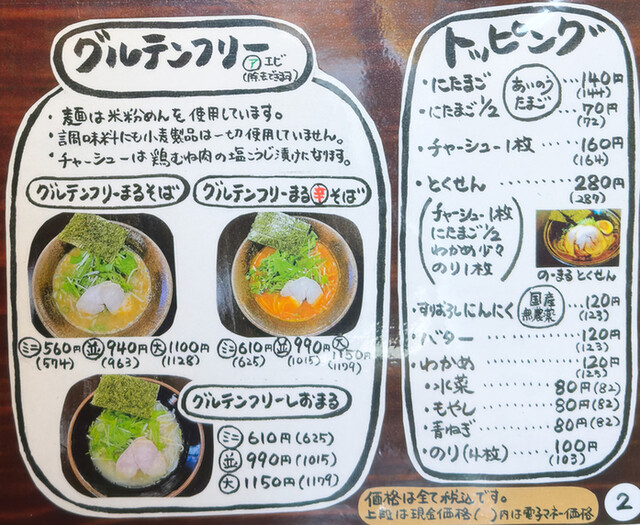 グルテンフリー
ア エビ
(除去できます)
・麺は米粉めんを使用しています。
・調味料にも小麦製品は一切使用していません。
・チャーシューは鶏むね肉の塩こうじ漬けになります。
グルテンフリーまるそば
グルテンフリーまる辛そば
ミニ560円 並940円 大1100円
(574) (963) (1128)
ミニ610円 並990円 大1150円
(625) (1015) (1179)
グルテンフリーしおまる
ミニ 610円(625)
並 990円(1015)
大 1150円(1179)
トッピング
・にたまご あいのうたまご …140円
(144)
・にたまご1/2 …70円
(72)
・チャーシュー1枚 ……160円
(164)
・とくせん ………280円
(287)
(チャーシュー1枚
にたまご1/2
わかめ少々
のり1枚)
の・まるとくせん
・すりおろしにんにく 国産無農薬 …120円
(123)
・バター ………120円
(123)
・わかめ ………120円
(123)
・水菜 ………80円(82)
・もやし ………80円(82)
・青ねぎ ………80円(82)
・のり(4枚) ……100円
(103)
価格は全て税込です。
上段は現金価格( )内は電子マネー価格
2